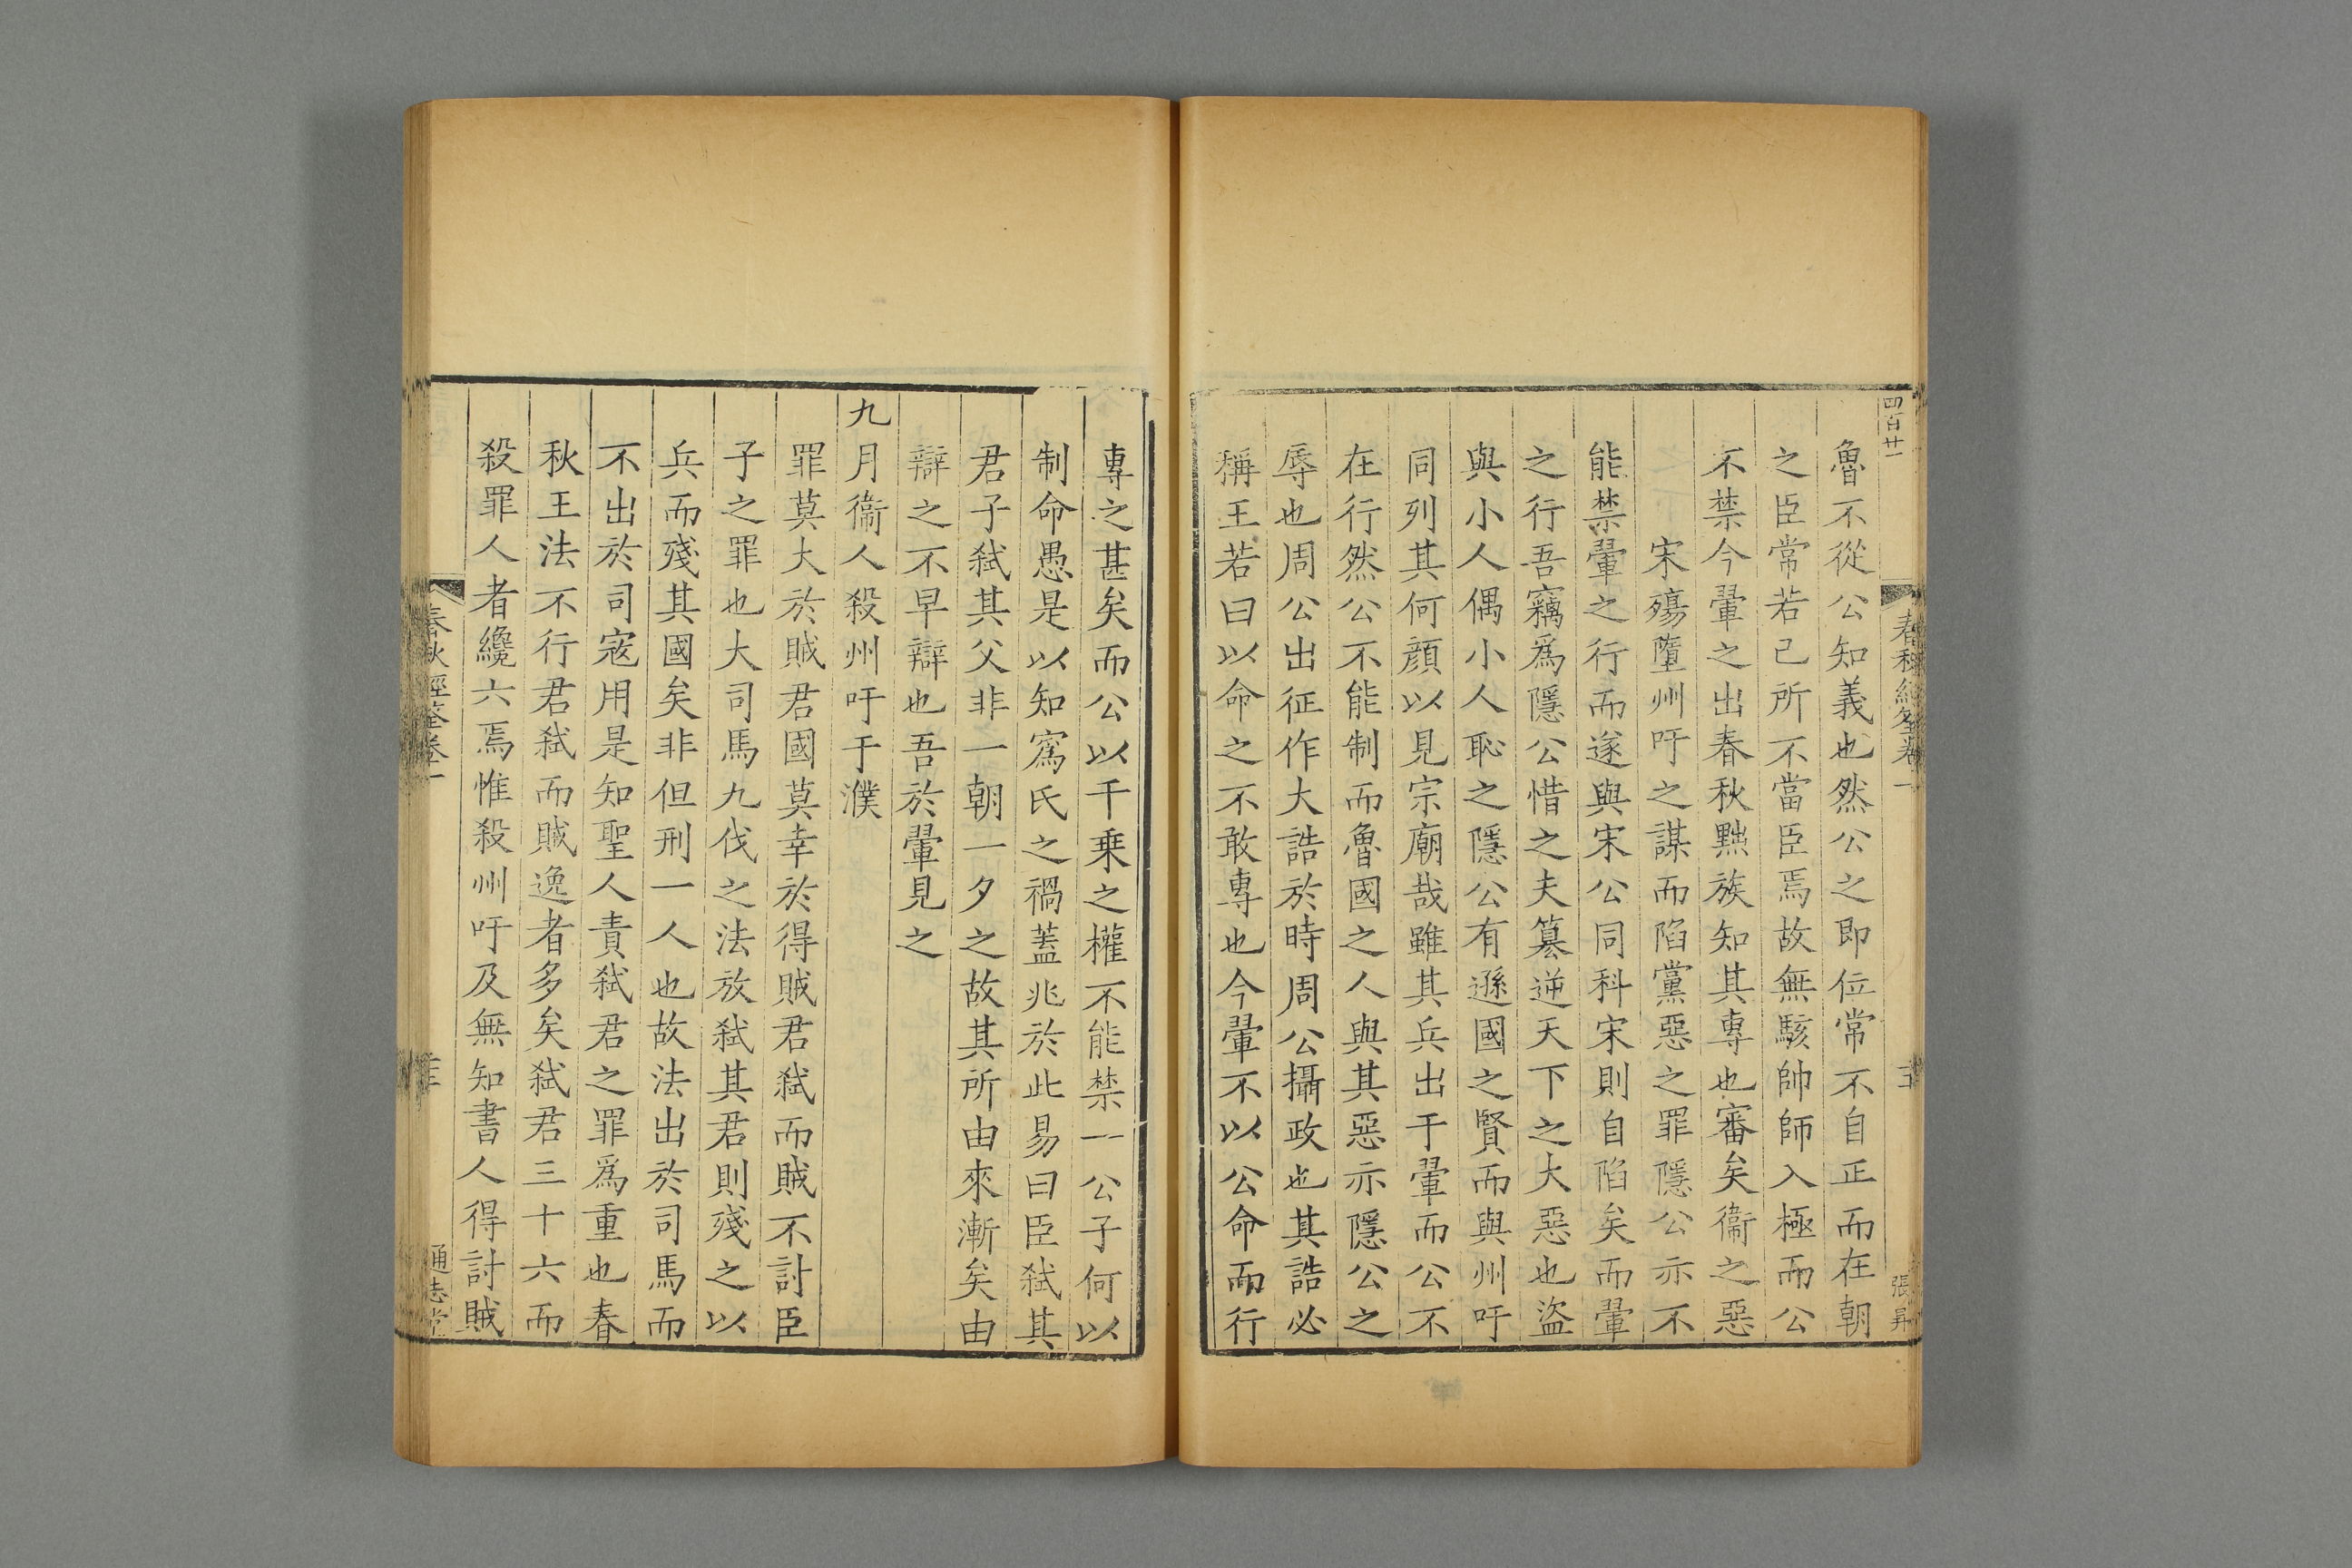 四百廿一
春秋經筌卷一
張昇
魯不從公知義也然公之即位常不自正而在朝
之臣常若己所不當臣焉故無駭帥師入極而公
不禁今翬之出春秋黜族知其專也審矣衞之惡
宋殤墮州吁之謀而陷黨惡之罪隱公亦不
能禁翬之行而遂與宋公同科宋則自陷矣而翬
之行吾竊爲隱公惜之夫簒逆天下之大惡也盜
與小人偶小人恥之隱公有遜國之賢而與州吁
同列其何顔以見宗廟哉雖其兵出于翬而公不
在行然公不能制而魯國之人與其惡亦隱公之
辱也周公出征作大誥於時周公攝政也其誥必
稱王若曰以命之不敢專也今翬不以公命而行
專之甚矣而公以千乗之權不能禁一公子何以
制命愚是以知寪氏之禍蓋兆於此易曰臣弑其
君子弑其父非一朝一夕之故其所由來漸矣由
辯之不早辯也吾於翬見之
九月衞人殺州吁于濮
罪莫大於賊君國莫幸於得賊君弑而賊不討臣
子之罪也大司馬九伐之法放弑其君則殘之以
兵而殘其國矣非但刑一人也故法出於司馬而
不出於司寇用是知聖人責弑君之罪爲重也春
秋王法不行君弑而賊逸者多矣弑君三十六而
殺罪人者纔六焉惟殺州吁及無知書人得討賊
春秋經筌卷一
通志堂